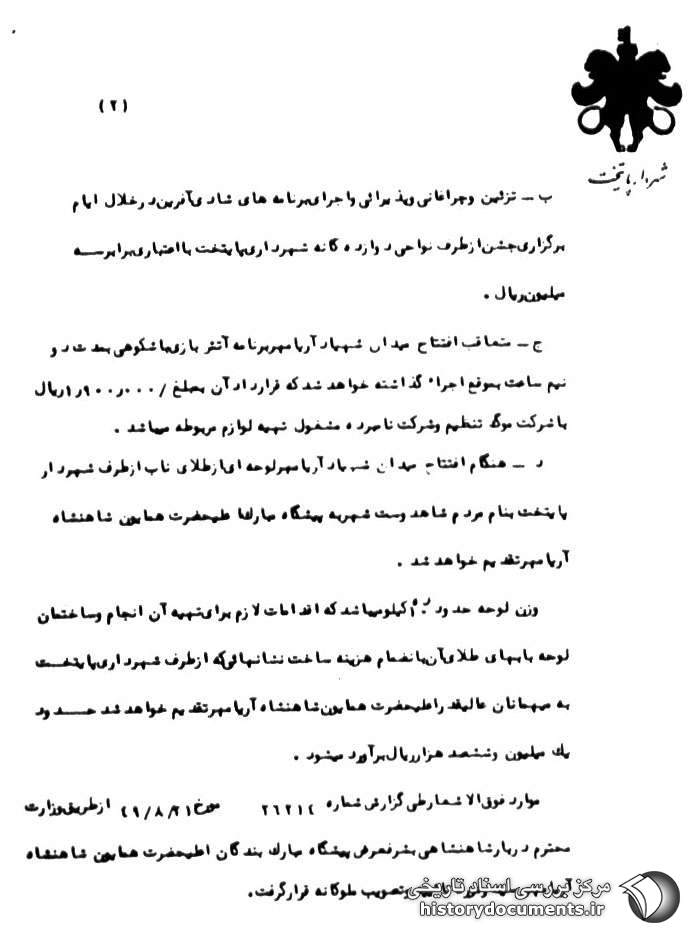 (۲)
شهردار پایتخت
ب ـ تزئین وچراغانی وپذیرائی واجرای برنامه های شادی آفرین درخلال ایام
برگزاری جشن ازطرف نواحی دوازده گانه شهرداری پایتخت بااعتباری برابرسـه
میلیون ریال .
ج ـ متعاقب افتتاح میدان شهیاد آریامهربرنامه آتش بازی باشکوهی بمدت دو
نیم ساعت بموقع اجراء گذاشته خواهد شد که قرارداد آن بمبلغ /۱٫۹۰۰٫۰۰۰ ریال
باشرکت تنظیم وشرکت نامبرده مشغول تهیه لوازم مربوطه میباشد .
د ـ هنگام افتتاح میدان شهیاد آریامهرلوحه ای ازطلای ناب ازطرف شهردار
پایتخت بنام مردم شاهدوست شهربه پیشگاه مبارک اعلیحضرت همایون شاهنشاه
آریامهرتقدیم خواهد شد .
وزن لوحه حدود کیلومیباشد که اقدامات لازم برای تهیه آن انجام وساختمان
لوحه بابهای طلای آن بانضمام هزینه ساخت نشانهائی که ازطرف شهرداری پایتخـت
به میهمانان عالیقدراعلیحضرت همایون شاهنشاه آریامهرتقدیم خواهد شد حــدود
یك میلیون وششصد هزارریال برآورد میشود .
موارد فوق الاشعارطی گزارش شماره ۲۶۲۱۴ مورخ ۴۹/۸/۲۱ ازطریق وزارت
محترم دربارشاهنشاهی بشرفعرض پیشگاه مبارك بندگان اعلیحضرت همایون شاهنشاه
وتصویب ملوکانه قرارگرفت.
مرکز بررسی اسناد تاریخی
historydocuments.ir